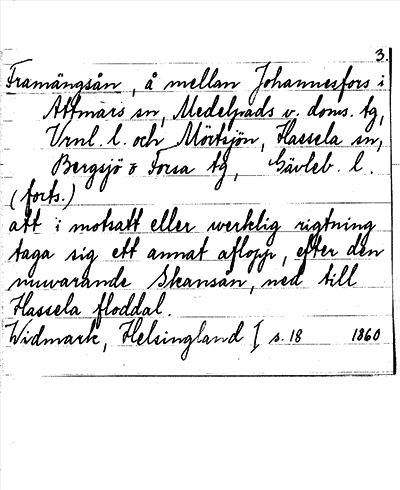 3.
Framängsån, å mellan Johannesfors i
Attmars sn, Medelpads v. doms. tg,
Vrnl. l. och Mörtsjön, Hassela sn,
Bergsjö o Forsa tg, Gävleb. l.
(forts.)
att i motsatt eller werklig rigtning
taga sig ett annat aflopp, efter den
nuvarande Skansån, ned till
Hassela floddal.
Widmark, Helsingland I s. 18 1860